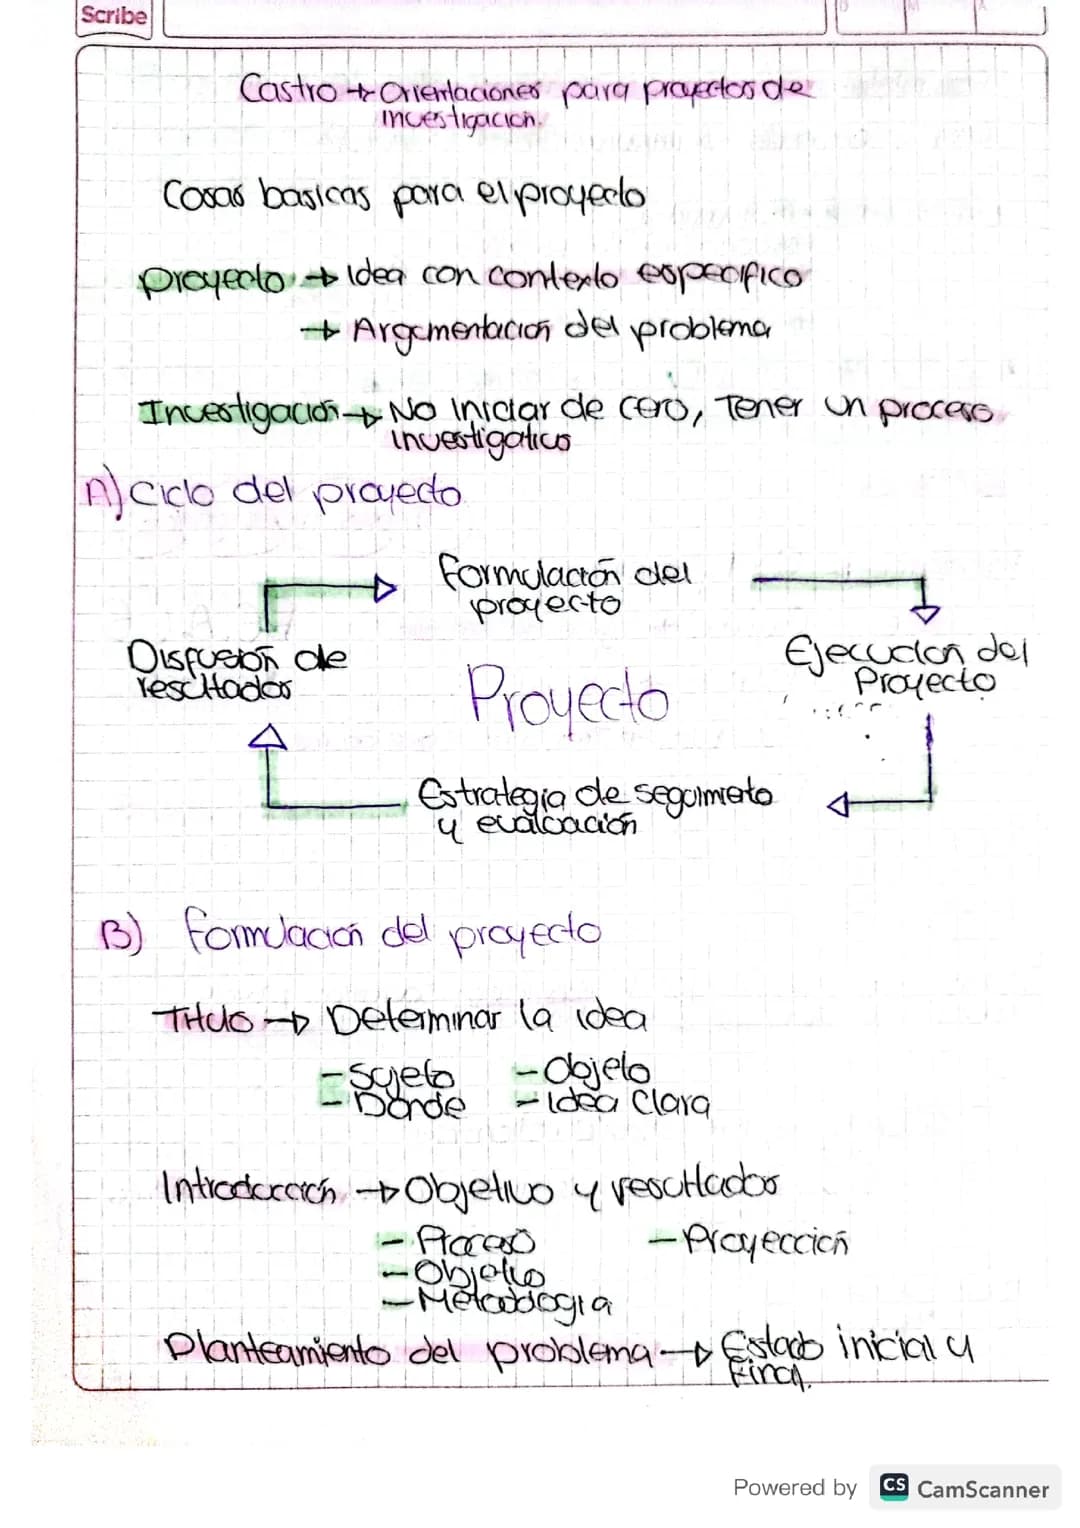 Scribe
Castro → Orientaciones para proyectos de
investigación.
Cosas basicas para el proyecto
proyecto → Idea con contexto especifico
→ Argumentación del problema
Investigación → No iniciar de cero, Tener un proceso
investigativo
A) Ciclo del proyecto
Formulación del
proyecto
Disfusión de
resultados
Ejecución del
Proyecto
Proyecto
Estrategia de seguimieto
y evaluación
B) Formulación del proyecto
Titulo → Determinar la idea
- Sujeto - Objeto
- Donde - Idea Clara
Introducción → Objetivo y resultados
- Proceso - Proyección
- Objetivo
- Metodología
Planteamiento del problema → Estado inicial y
Final.
Powered by CS CamScanner